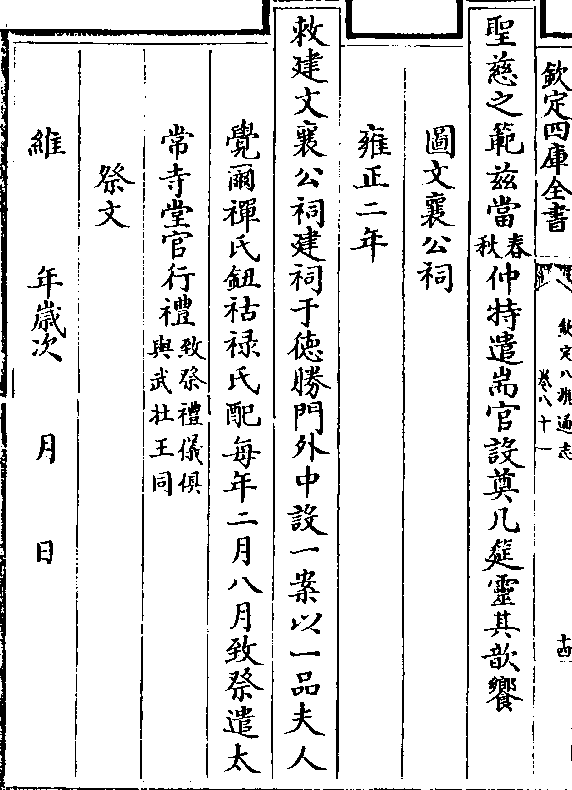 欽定四庫全書
欽定八旗通志
卷八十一
十四
聖慈之範兹當春秋仲特遣耑官設奠几筵靈其歆饗
圖文襄公祠
雍正二年
敕建文襄公祠建祠于德勝門外中設一案以一品夫人
覺爾禪氏鈕祜禄氏配每年二月八月致祭遣太
常寺堂官行禮致祭禮儀俱與武壯王同
祭文
維 年歲次 月 日